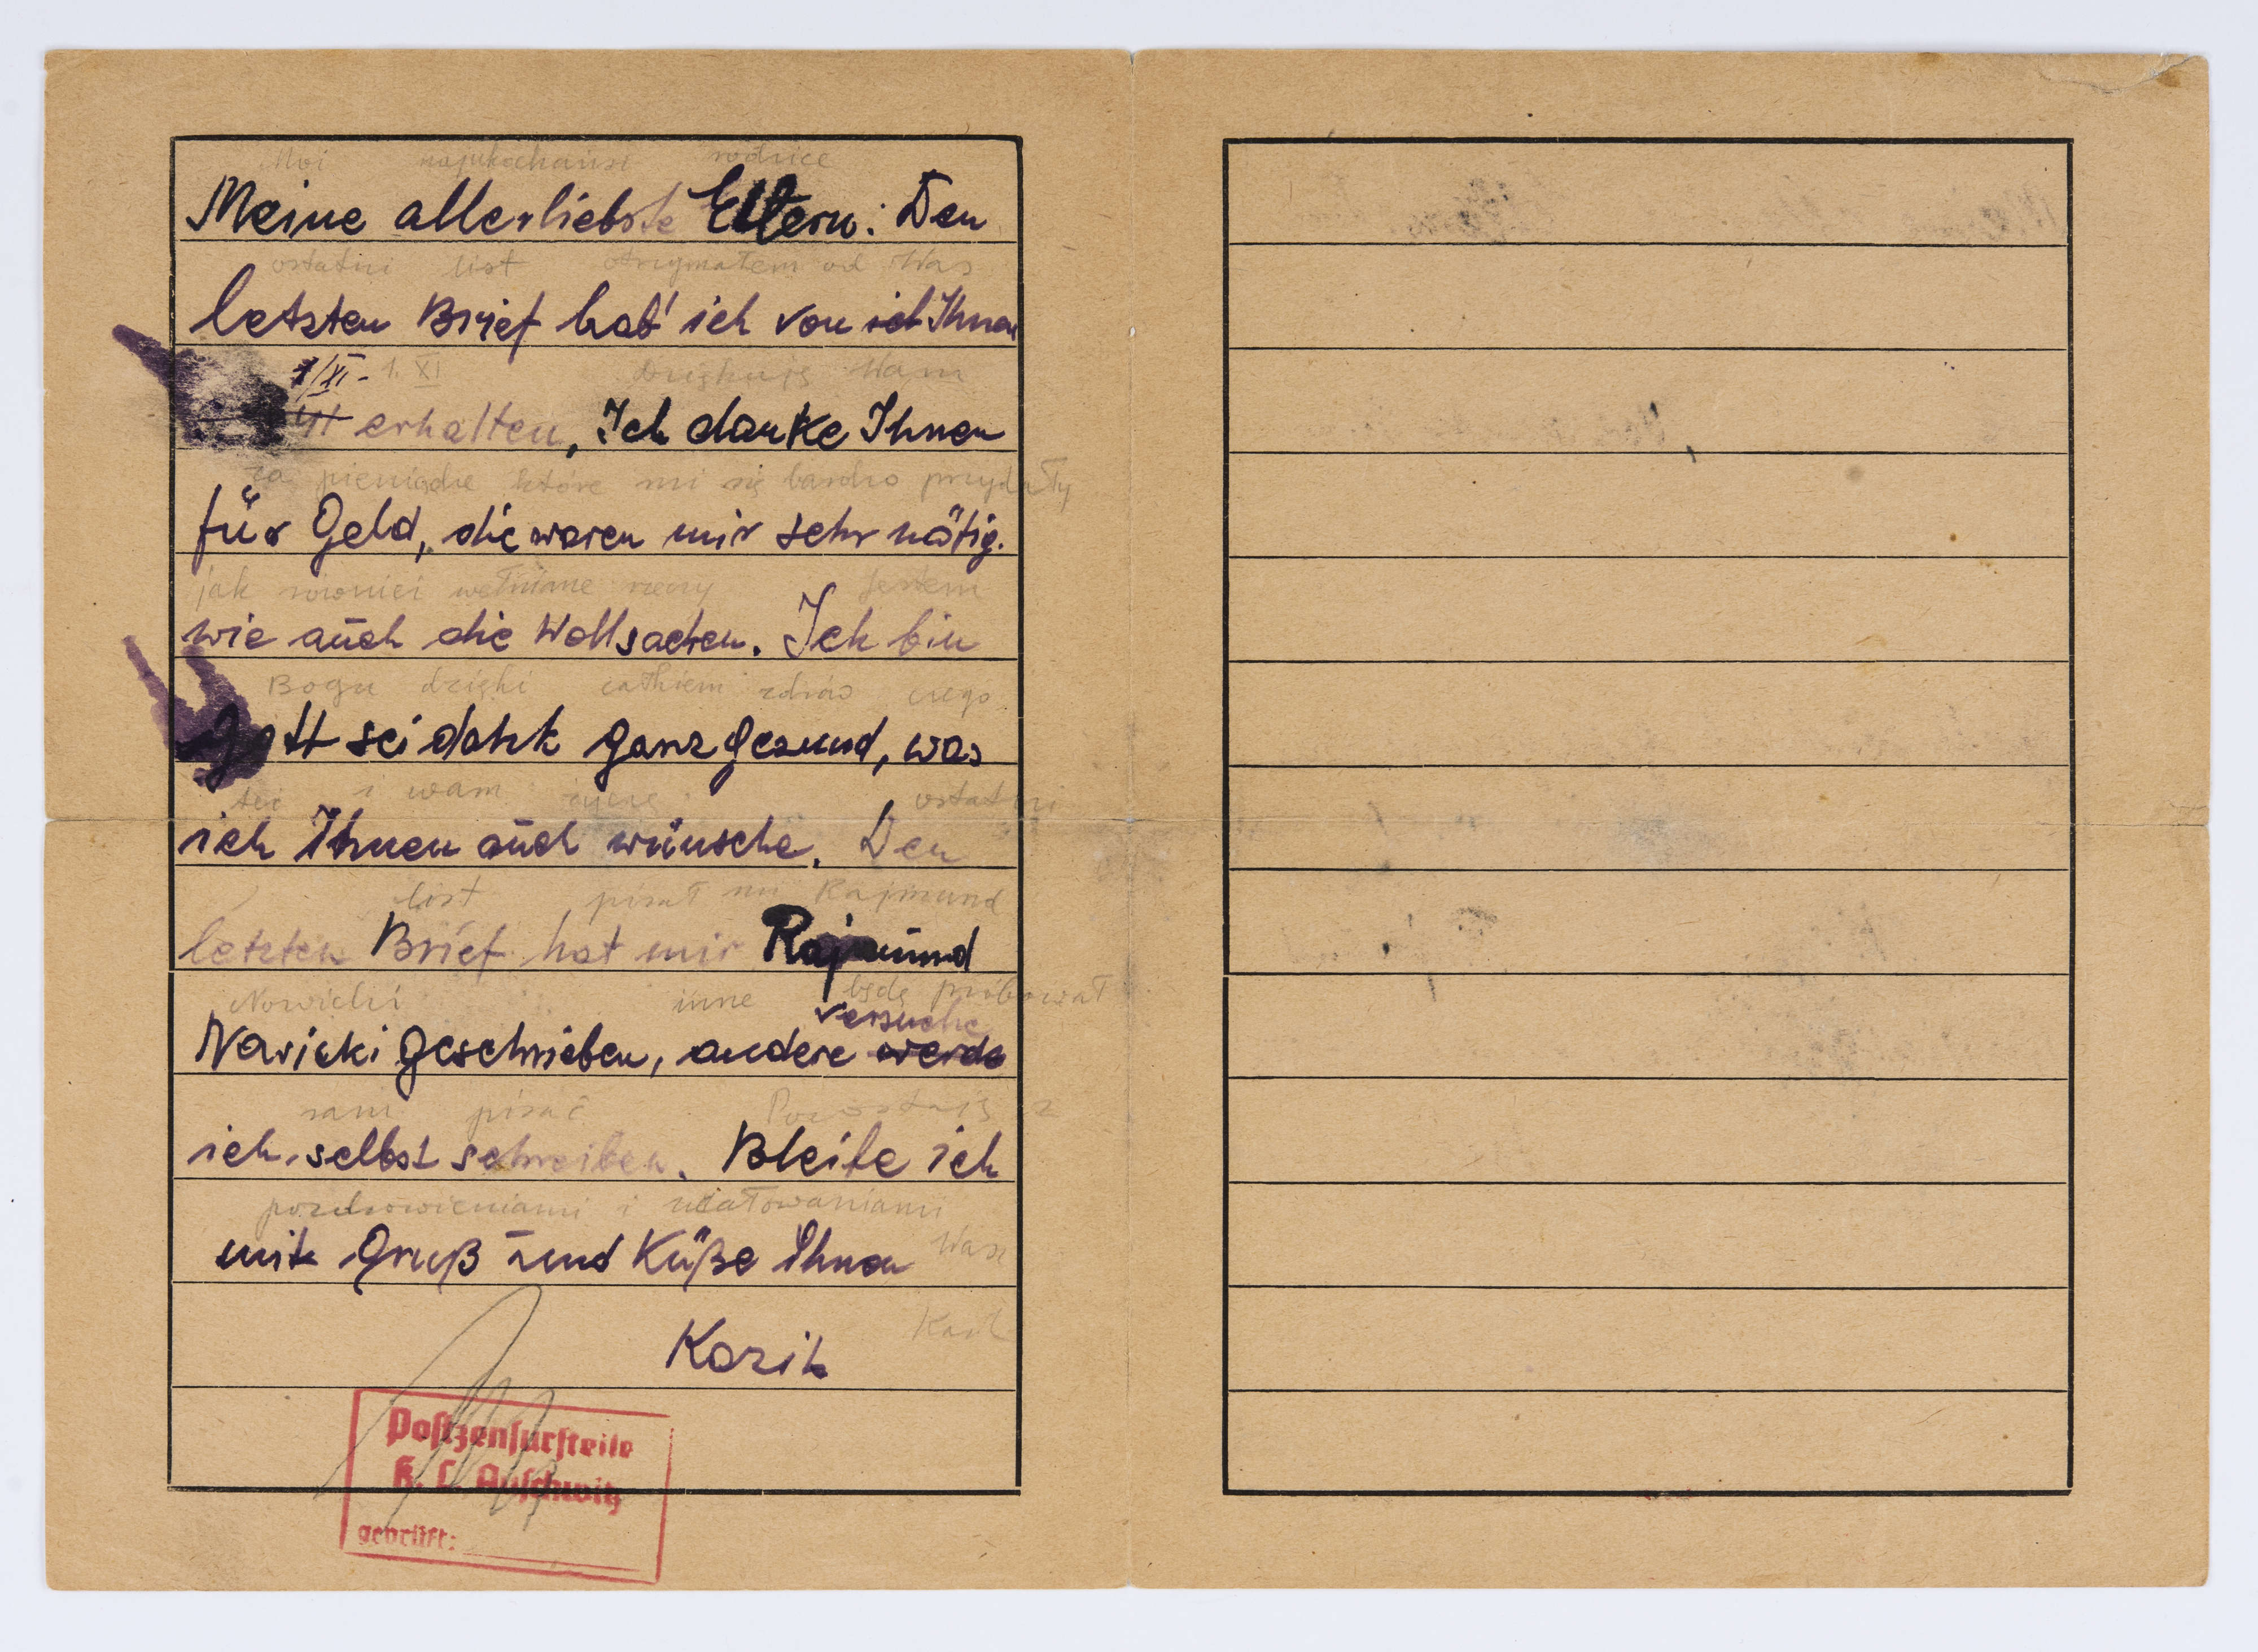 Moi najukochańsi rodzice
Meine allerliebste Eltern: Den
ostatni list otrzymałem od Was
letzten Brief hab' ich von ich Ihnen
1/XI - 1. XI Dziękuję Wam
erhalten, Ich danke Ihnen
za pieniądze które mi się bardzo przydały
für Geld, die waren mir sehr nötig.
jak również wełniane rzeczy Jestem
wie auch die Wollsachen. Ich bin
Bogu dzięki całkiem zdrów czego
Gott sei dank ganz gesund, was
też i wam życzę ostatni
ich Ihnen auch wünsche. Den
list pisał mi Rajmund
letzten Brief hat mir Rajmund
Nowicki inne będę próbował
versuche
Navicki geschrieben, andere werde
sam pisać Pozostaję z
ich selbst schreiben. Bleibe ich
pozdrowieniami i ucałowaniami
mit Gruß und Küße Ihnen Wasz
Kazik
Postzensurstelle
K. L. Auschwitz
geprüft: